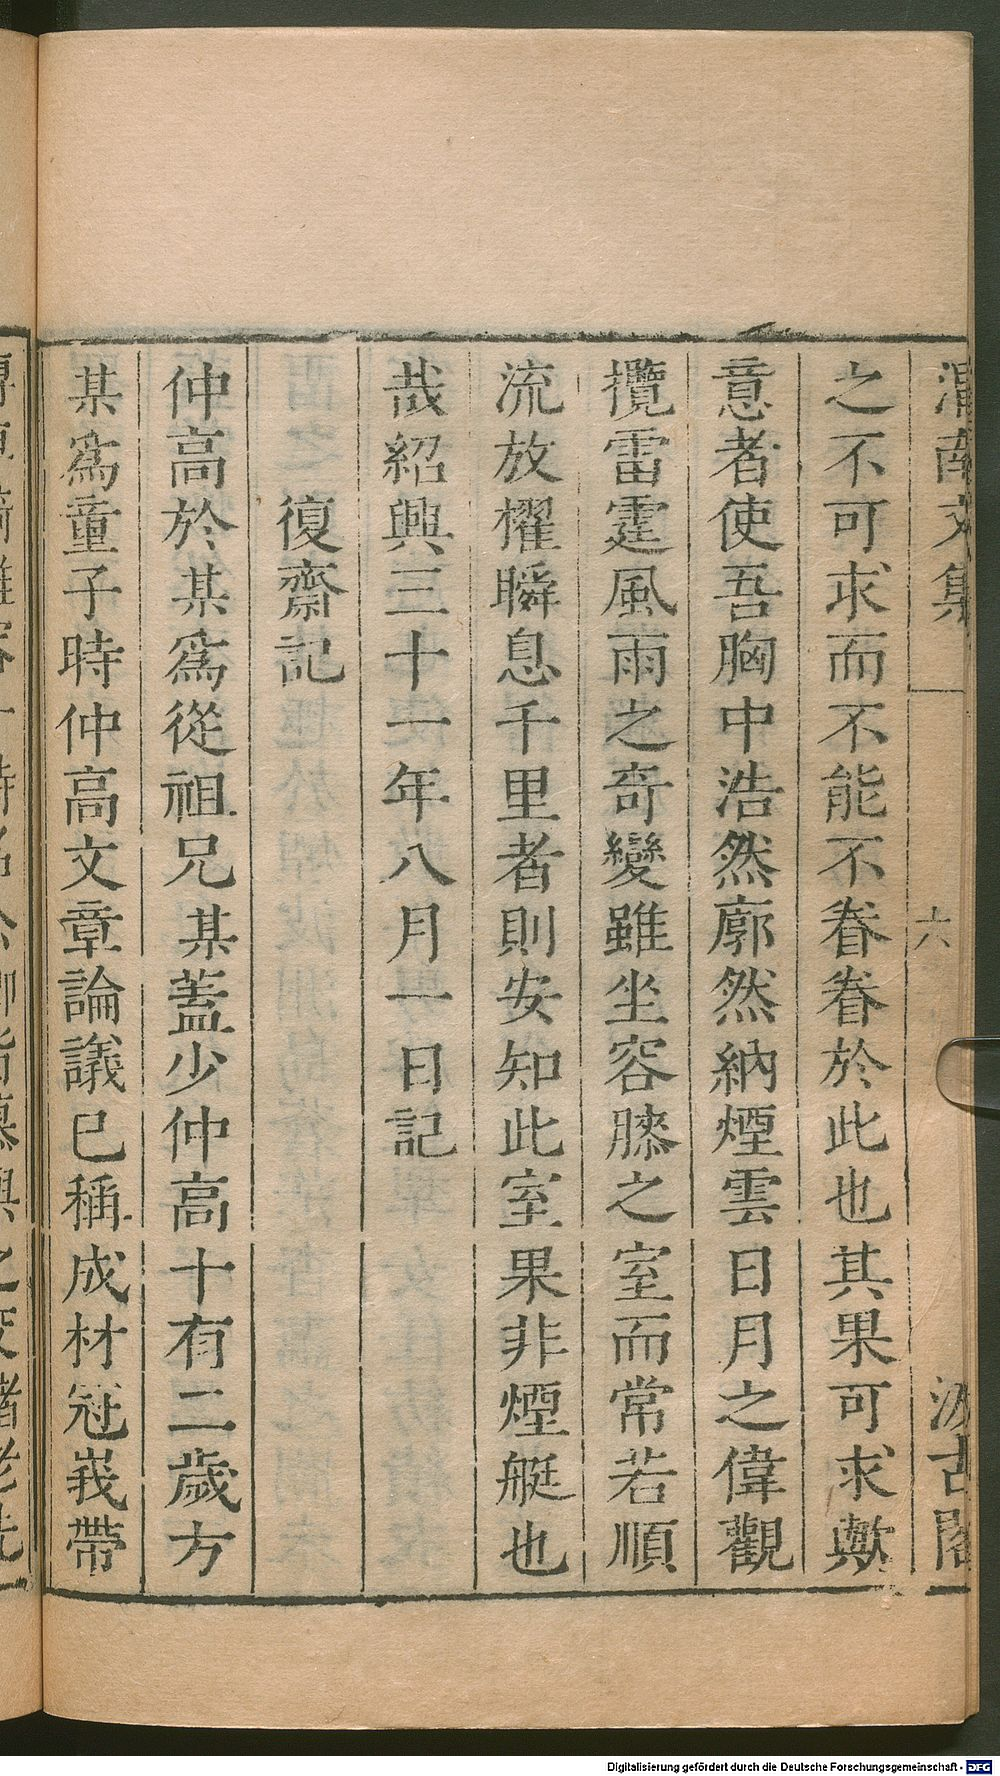 渭南文集
六
汲古閣
之不可求而不能不眷眷於此也其果可求歟
意者使吾胸中浩然廓然納煙雲日月之偉觀
攬雷霆風雨之奇變雖坐容膝之室而常若順
流放櫂瞬息千里者則安知此室果非煙艇也
哉紹興三十一年八月一日記
復齋記
仲高於某爲從祖兄某蓋少仲高十有二歲方
某爲童子時仲高文章論議已稱成材冠峩帶
Digitalisierung gefördert durch die Deutsche Forschungsgemeinschaft - DFG